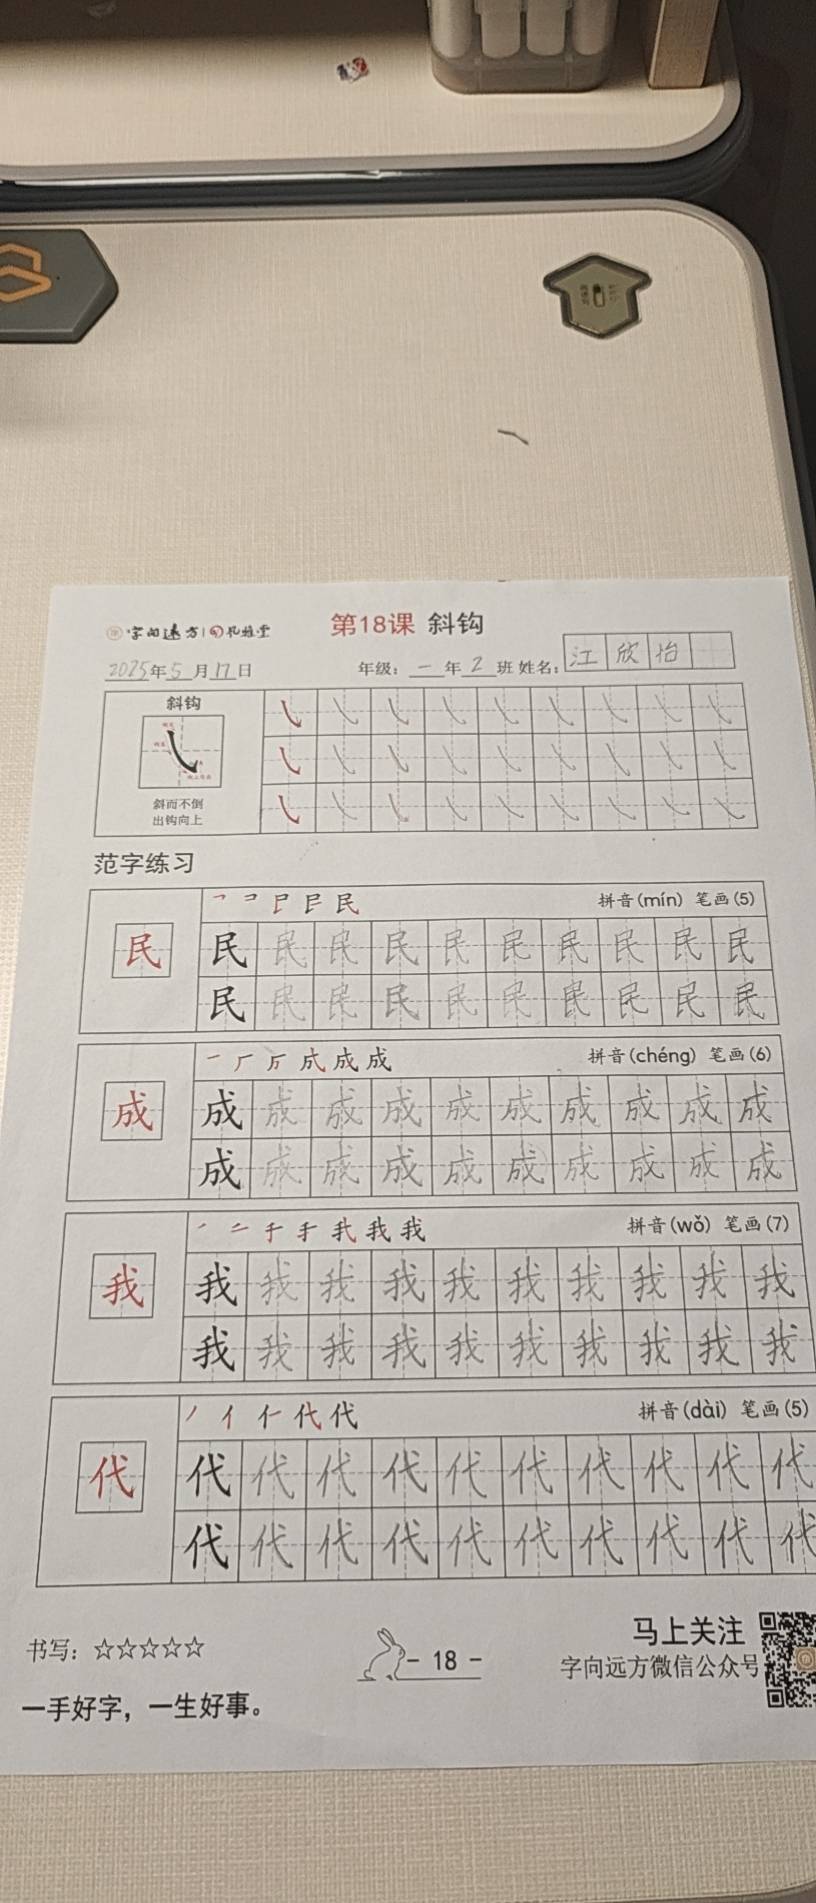 字向远方 凡雄堂
第18课 斜钩
2025年5月17日 年级:一年2班 姓名:江欣怡
斜钩
斜而不倒
出钩向上
范字练习
拼音(mín) 笔画(5)
民 民 民 民 民 民 民 民 民 民 民
民 民 民 民 民 民 民 民 民 民
拼音(chéng) 笔画(6)
成 成 成 成 成 成 成 成 成 成 成
成 成 成 成 成 成 成 成 成 成
拼音(wǒ) 笔画(7)
我 我 我 我 我 我 我 我 我 我 我
我 我 我 我 我 我 我 我 我 我
拼音(dài) 笔画(5)
代 代 代 代 代 代 代 代 代 代 代
代 代 代 代 代 代 代 代 代 代
书写:☆☆☆☆☆
- 18 -
马上关注
字向远方微信公众号
一手好字,一生好事。